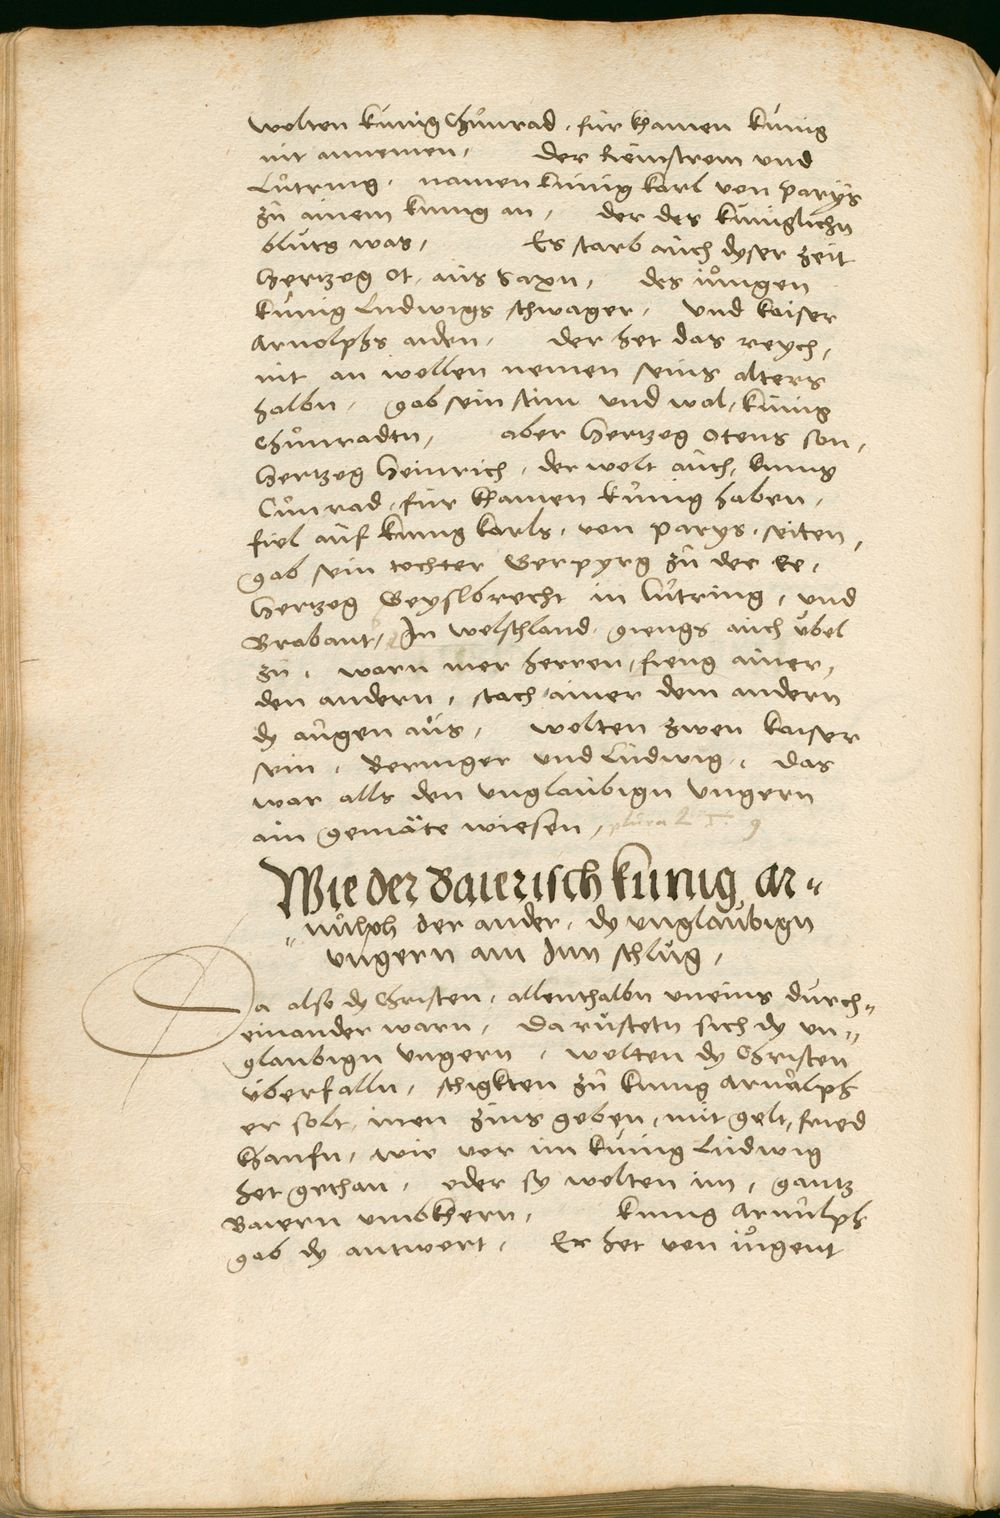 wolten künig Chůnrad, für khainen künig
nit annemen, der Reinstrom und
Lůtring, namen künig karl von parys
zů ainem künig an, der des küniglichn
blůts was, Es starb auch dyser zeit
hertzog Ot, aus Saxn, des iůngen
künig Ludwigs schwager, und kaiser
Arnolphs aiden, der het das reych,
nit an wollen nemen seins alters
halbn, gab sein stim und wal, künig
Chůnradtn, aber hertzog Otens son,
hertzog Heinrich, der wolt auch, künig
Cůnrad, für khainen künig haben,
fiel auf künig karls, von parys, seiten,
gab sein tochter Gerpyrg zů der Ee,
hertzog Geyslbrecht in Lůtring, und
Brabant, In welschland giengs auch übel
zů, warn mer herren, fieng ainer,
den andern, stach ainer dem andern
dy augen aus, wolten zwen kaiser
sein, Beringer und Ludwig, das
war alls den unglaubign Ungern
ain gemäte wiesen,
Wie der baierisch künig Ar=
=nůlph der ander, dy unglaubign
ungern am Inn schlůg,
Da also dy Christen, allenthalbn uneins durch=
einander warn, Da růstetn sich dy un=
glaubign ungern, wolten dy Christen
überfalln, schigkten zů künig Arnůlph
er solt, inen zins geben, mit gelt, fried
khaufn, wie vor im künig Ludwig
het gethan, oder sy wolten im, gantz
Baiern umbkhern, künig Arnůlph
gab dy antwort, Er het von iůgent